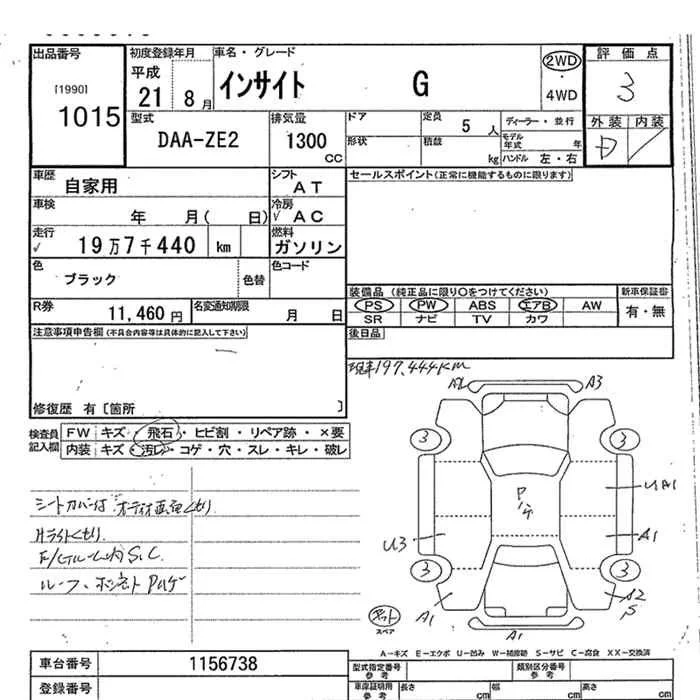 出品番号
[1990]
1015
初度登録年月
平成
21 8月
車名・グレード
インサイト G
2WD
・
4WD
評価点
3
外装 内装
型式
DAA-ZE2
排気量
1300
CC
ドア
形状
定員
5 人
積載
kg
ディーラー・並行
モデル年式 年
ハンドル 左・右
車歴
自家用
シフト
AT
車検
年 月( 日)
冷房
✓ AC
走行
✓ 19万7千440 km
燃料
ガソリン
色
ブラック
色替
色コード
R券
11,460 円
名変通知期限
月 日
セールスポイント(正常に機能するものに限ります)
装備品 (純正品に限り○をつけてください)
PS PW ABS エアB AW
SR ナビ TV カワ
新車保証書
有・無
後日品
注意事項申告欄(不具合内容等は具体的に記入して下さい)
修復歴 有〔箇所 〕
現車197,444km
検査員
記入欄
FW キズ・飛石・ヒビ割・リペア跡・×要
内装 キズ・汚レ・コゲ・穴・スレ・キレ・破レ
シートカバー付
ルーフ、ボンネット
A2 A3
3 3
UA1
U3 A1
3 3
A1 A2
S
A1
スペア
A－キズ E－エクボ U－凹み W－補修跡 S－サビ C－腐食 XX－交換済
車台番号
1156738
登録番号
型式指定番号
参考
類別区分番号
参考
車庫証明用
参考
長さ cm
幅 cm
高さ cm